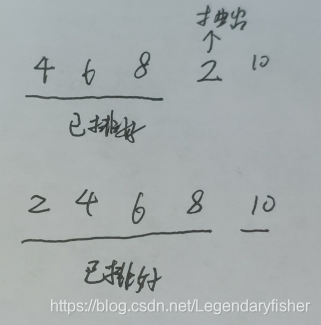 抽出
4 6 8 2 10
已排好
2 4 6 8 10
已排好
https://blog.csdn.net/Legendaryfisher